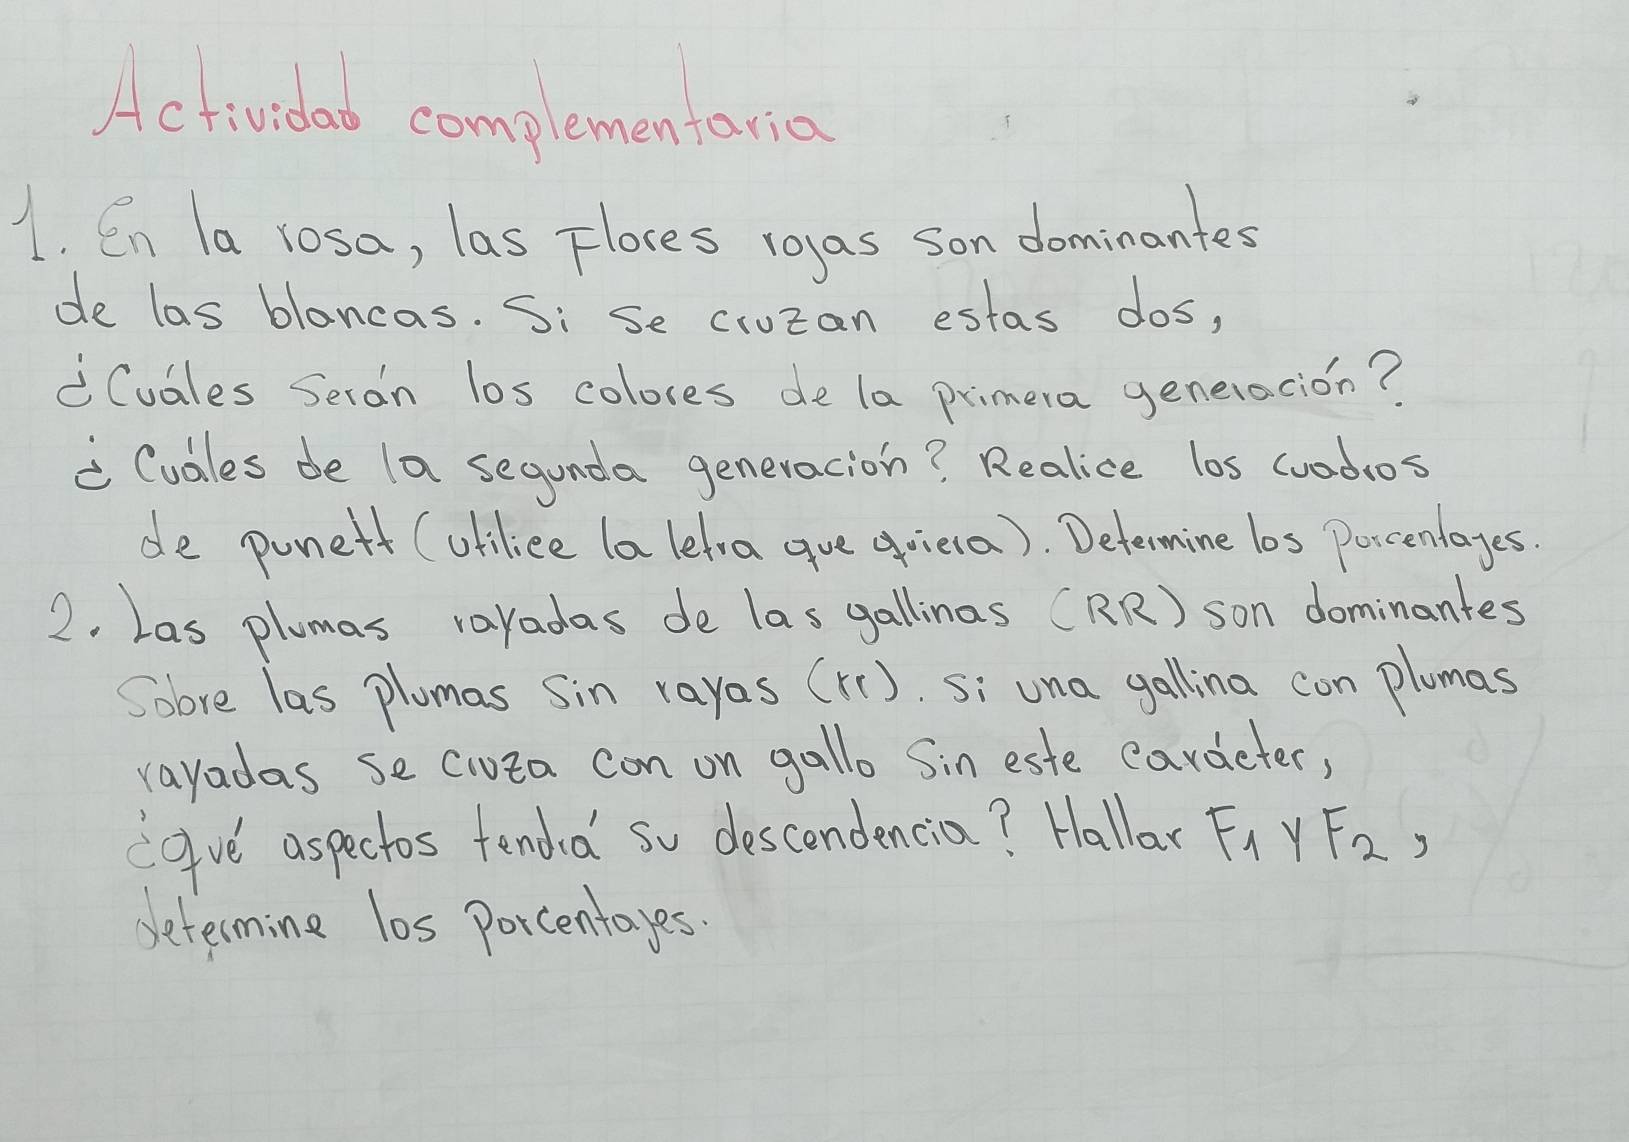 Actividad complementaria
1. En la rosa, las Flores rojas son dominantes
de las blancas. Si se cruzan estas dos,
¿Cuáles serán los colores de la primera generación?
¿Cuáles de la segunda generación? Realice los cuadros
de punett (utilice la letra que quiera). Determine los Porcentajes.
2. Las plumas rayadas de las gallinas (RR) son dominantes
Sobre las plumas sin rayas (rr). Si una gallina con plumas
rayadas se cruza con un gallo sin este carácter,
¿qué aspectos tendrá su descendencia? Hallar F1 y F2,
determine los Porcentajes.